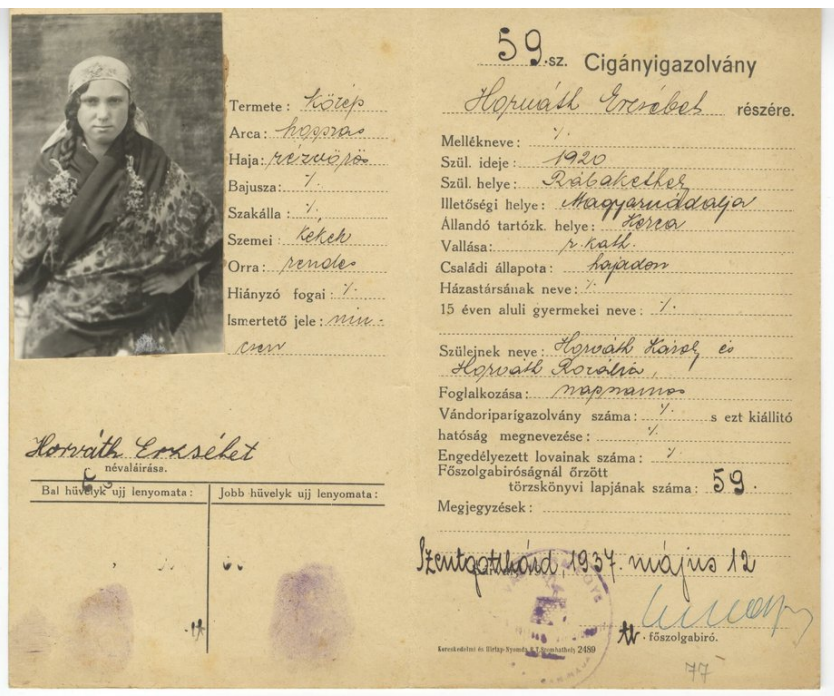 59. sz. Cigányigazolvány
Horváth Erzsébet részére.
Termete: Közép
Arca: hosszas
Haja: rézvörös
Bajusza: ∕.
Szakálla: ∕.
Szemei: kékek
Orra: rendes
Hiányzó fogai: ∕.
Ismertető jele: nin-
csen
Horváth Erzsébet
névaláírása.
Bal hüvelyk ujj lenyomata: Jobb hüvelyk ujj lenyomata:
Mellékneve: ∕.
Szül. ideje: 1920
Szül. helye: Rábakethely
Illetőségi helye: Magyarnádalja
Állandó tartózk. helye: Kerca
Vallása: r. kath.
Családi állapota: hajadon
Házastársának neve: ∕.
15 éven aluli gyermekei neve: ∕.
Szüleinek neve: Horváth Károly és
Horváth Rozália,
Foglalkozása: napszámos
Vándoriparigazolvány száma: ∕. s ezt kiállító
hatóság megnevezése: ∕.
Engedélyezett lovainak száma: ∕.
Főszolgabiróságnál őrzött
törzskönyvi lapjának száma: 59.
Megjegyzések:
Szentgotthárd, 1937. május 12
főszolgabiró.
Kereskedelmi és Hirlap-Nyomda R.T. Szombathely 2489
77